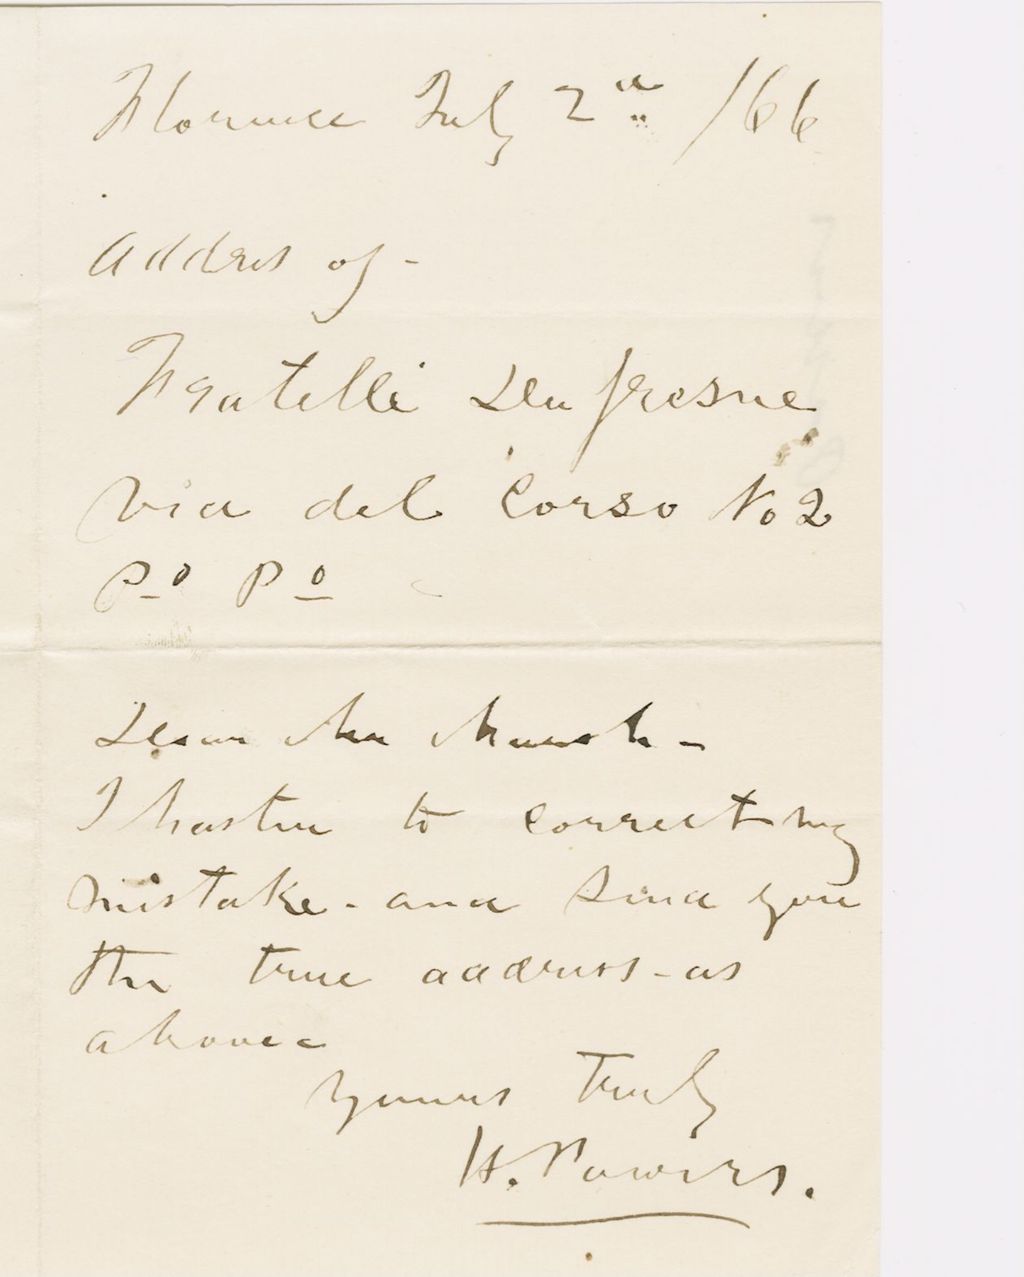 Florence July 2d /66
Address of -
Fratelli Dufresne
Via del Corso No 2
Po Po
Dear Mr Marsh -
I hasten to correct my
mistake - and send you
the true address - as
above -
Yours Truly
H. Powers.